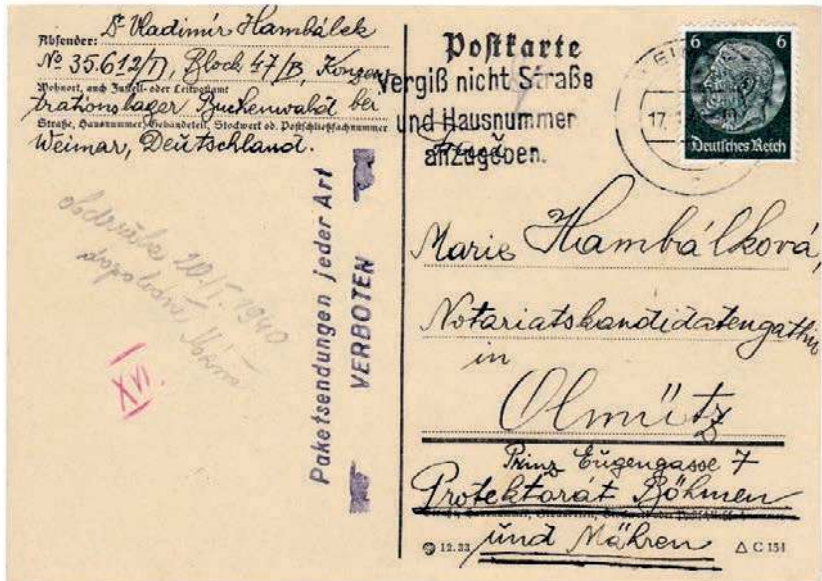 Absender: Dr Vladimír Hambálek
No 35.612/D, Block 47/B, Konzen
Wohnort, auch Zustell- oder Leitpostamt
trationslager Buchenwald bei
Straße, Hausnummer, Gebäudeteil, Stockwerk od. Postschließfachnummer
Weimar, Deutschland.
obdržela 20/I. 1940
dopoledne
XVI.
Paketsendungen jeder Art
VERBOTEN
Postkarte
Vergiß nicht Straße
und Hausnummer
anzugeben.
17.
6 6
Deutsches Reich
Marie Hambálková,
Notariatskandidatengattin
in
Olmütz
Prinz Eugengasse 7
Protektorat Böhmen
und Mähren
12.33
C 154